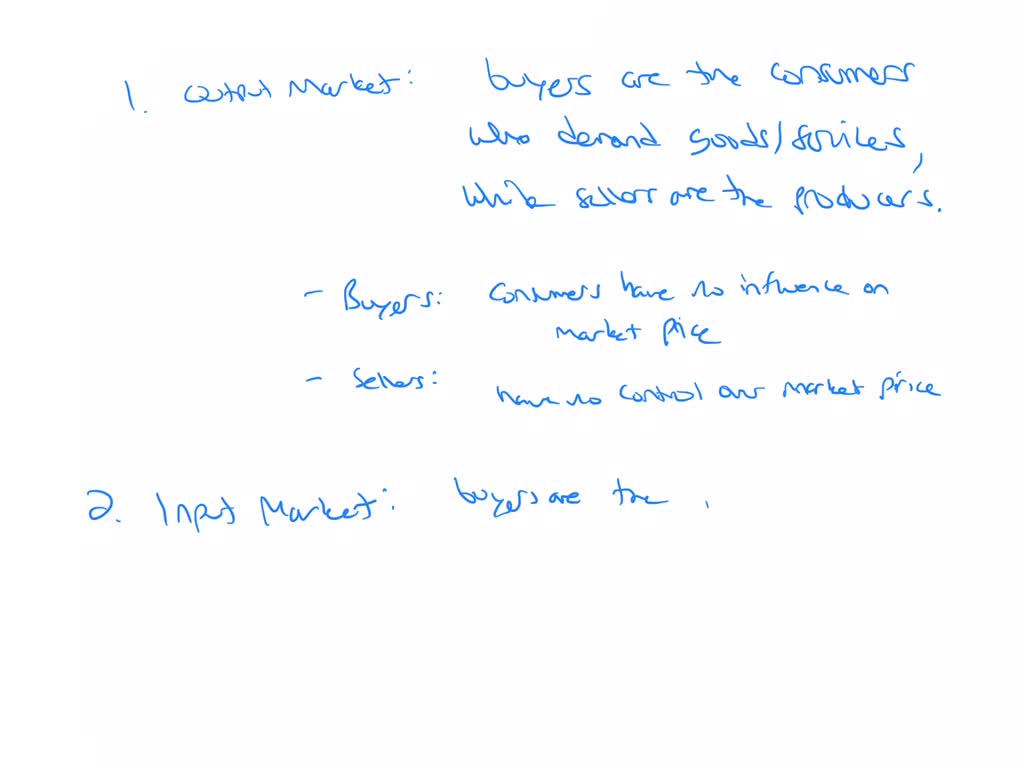 1. Output Market: buyers are the consumers
who demand goods/services,
while sellers are the producers.
- Buyers: Consumers have no influence on
market price
- Sellers: have no control over market price
2. Input Market: buyers are the